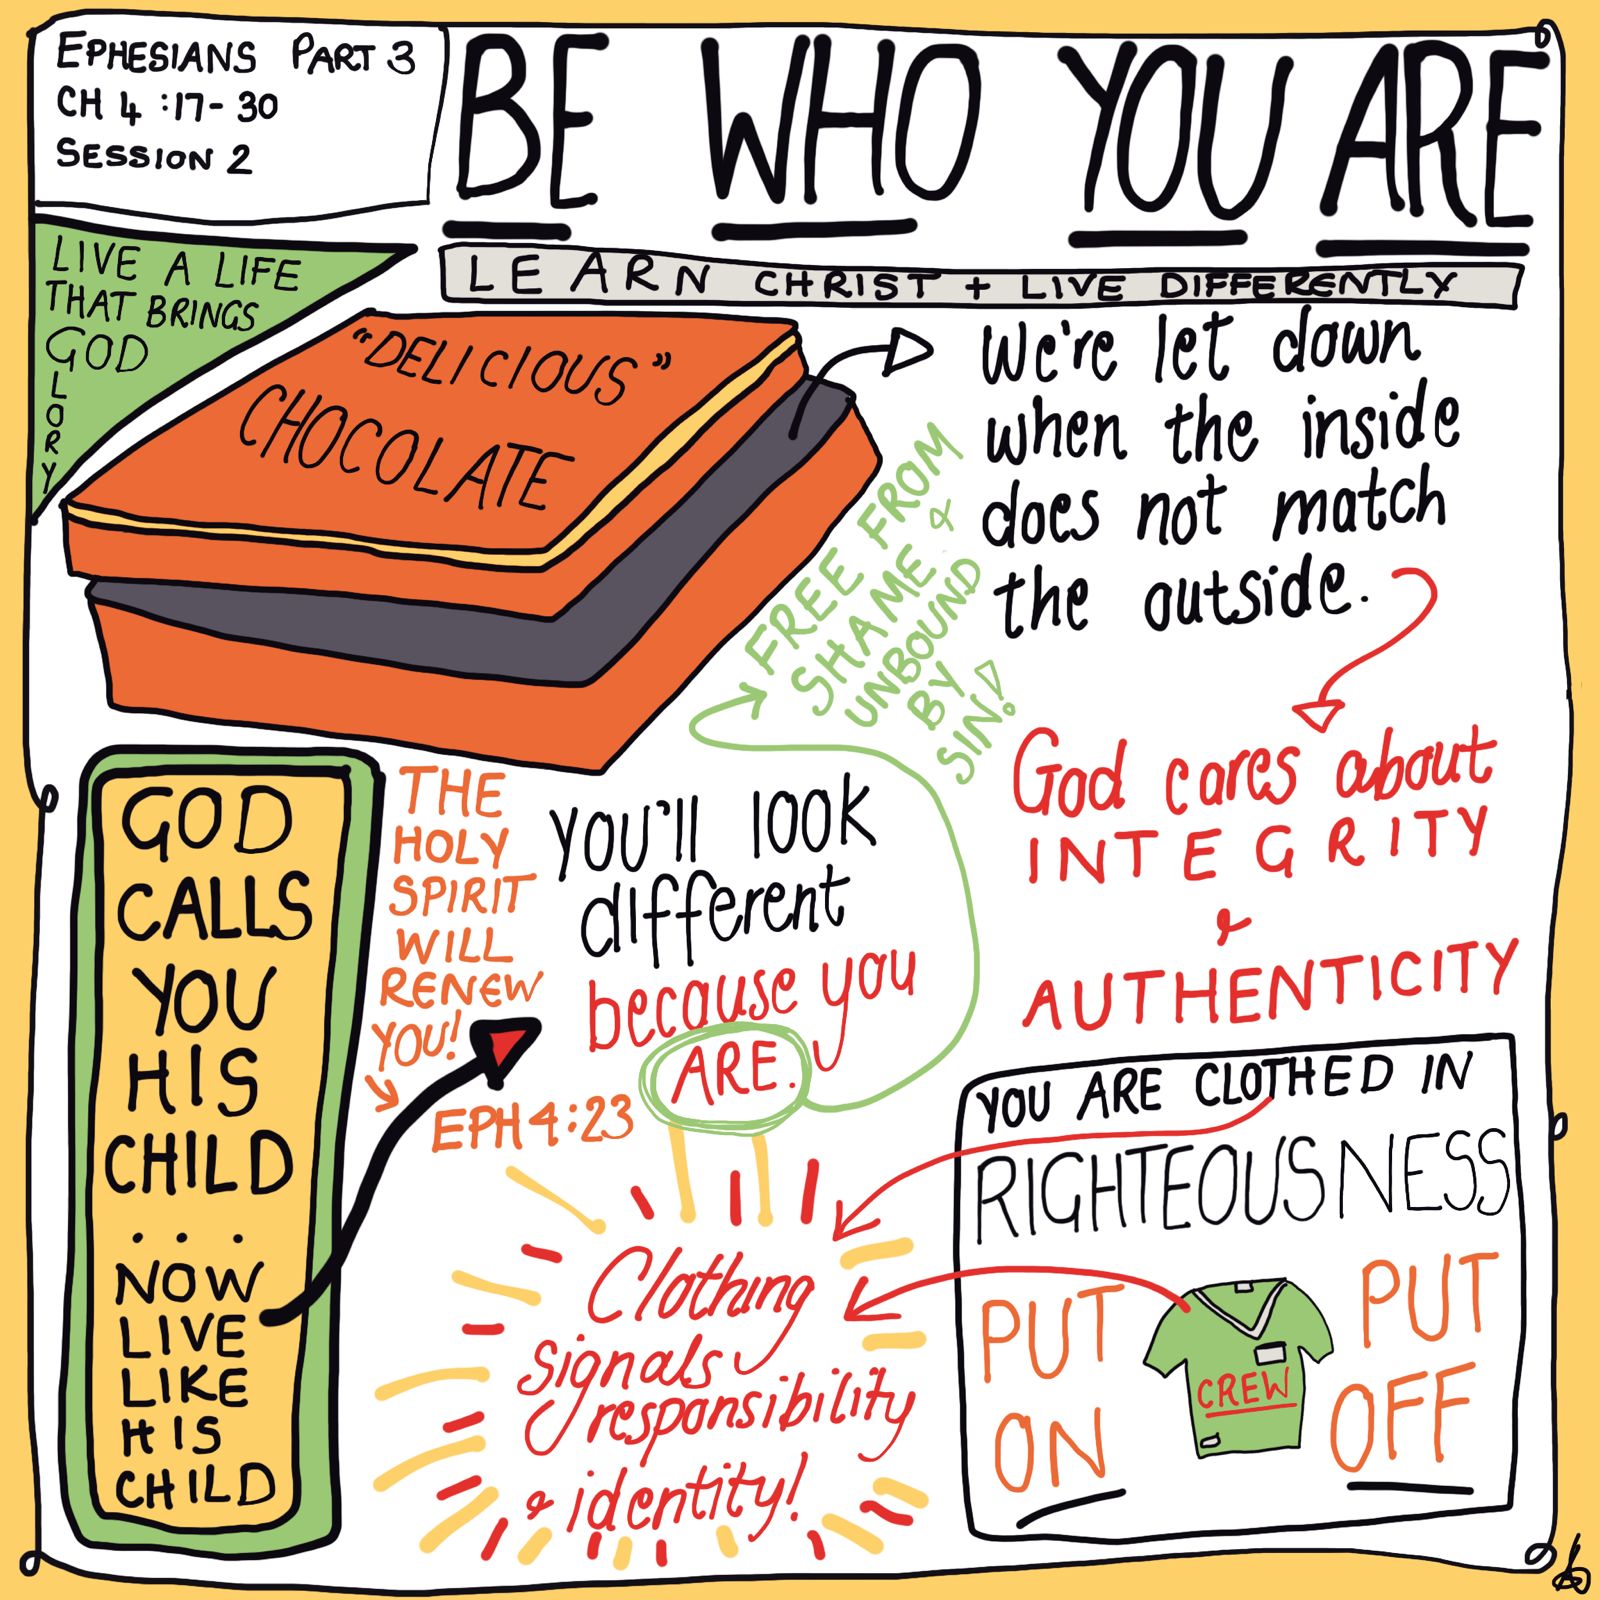 EPHESIANS PART 3
CH 4 :17-30
SESSION 2
BE WHO YOU ARE
LEARN CHRIST + LIVE DIFFERENTLY
LIVE A LIFE
THAT BRINGS
GOD
GLORY
"DELICIOUS"
CHOCOLATE
We're let down
when the inside
does not match
the outside.
FREE FROM
SHAME &
UNBOUND
BY
SIN!
God cares about
INTEGRITY
&
AUTHENTICITY
GOD
CALLS
YOU
HIS
CHILD
...
NOW
LIVE
LIKE
HIS
CHILD
THE
HOLY
SPIRIT
WILL
RENEW
YOU!
EPH 4:23
YOU'll look
different
because you
ARE.
Clothing
signals
responsibility
& identity!
YOU ARE CLOTHED IN
RIGHTEOUSNESS
PUT
ON
CREW
PUT
OFF